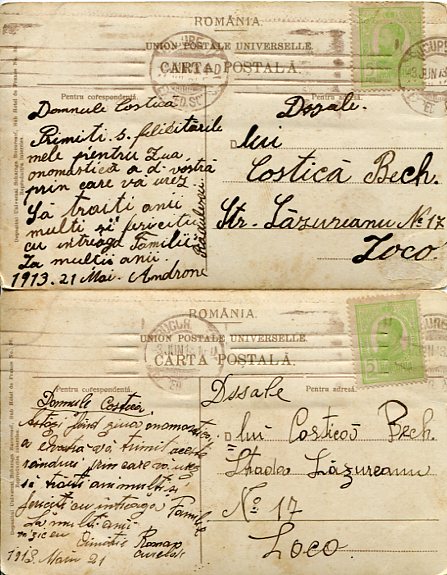 ROMÂNIA.
UNION POSTALE UNIVERSELLE.
CARTA POSTALĂ.
Pentru corespondență.
Domnule Costica
Primiti s. felicitările
mele pientru Zua
onomastică a d. vostră
prin care vă urez
Să traiti ani
multi si fericiti
cu intreaga Familie
La multi ani.
1913. 21 Mai. Androne
Pentru adresă.
D-ssale.
D lui
Costică Bech.
Str. Lăzureanu No 17
Loco.
ROMÂNIA.
UNION POSTALE UNIVERSELLE.
CARTA POSTALĂ.
Pentru corespondență.
Domnule Costica,
Astazi fiind ziua onomastica
a vă trimit aceste
rânduri prin care vă urez
să traiti ani multi si
fericiti cu intreaga Familie
La multi ani
Dimitie
1913. Maiu 21
Pentru adresă.
Dssale
D lui Costică Bech.
Strada Lăzureanu
No 17
Loco.